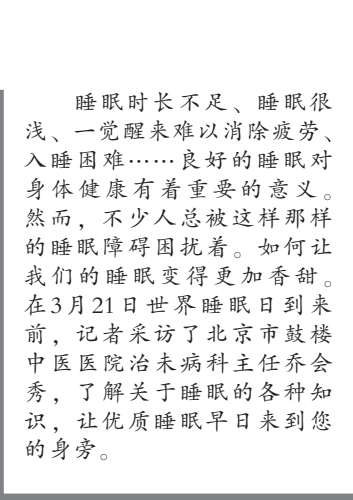 睡眠时长不足、睡眠很
浅、一觉醒来难以消除疲劳、
入睡困难……良好的睡眠对
身体健康有着重要的意义。
然而，不少人总被这样那样
的睡眠障碍困扰着。如何让
我们的睡眠变得更加香甜。
在3月21日世界睡眠日到来
前，记者采访了北京市鼓楼
中医医院治未病科主任乔会
秀，了解关于睡眠的各种知
识，让优质睡眠早日来到您
的身旁。